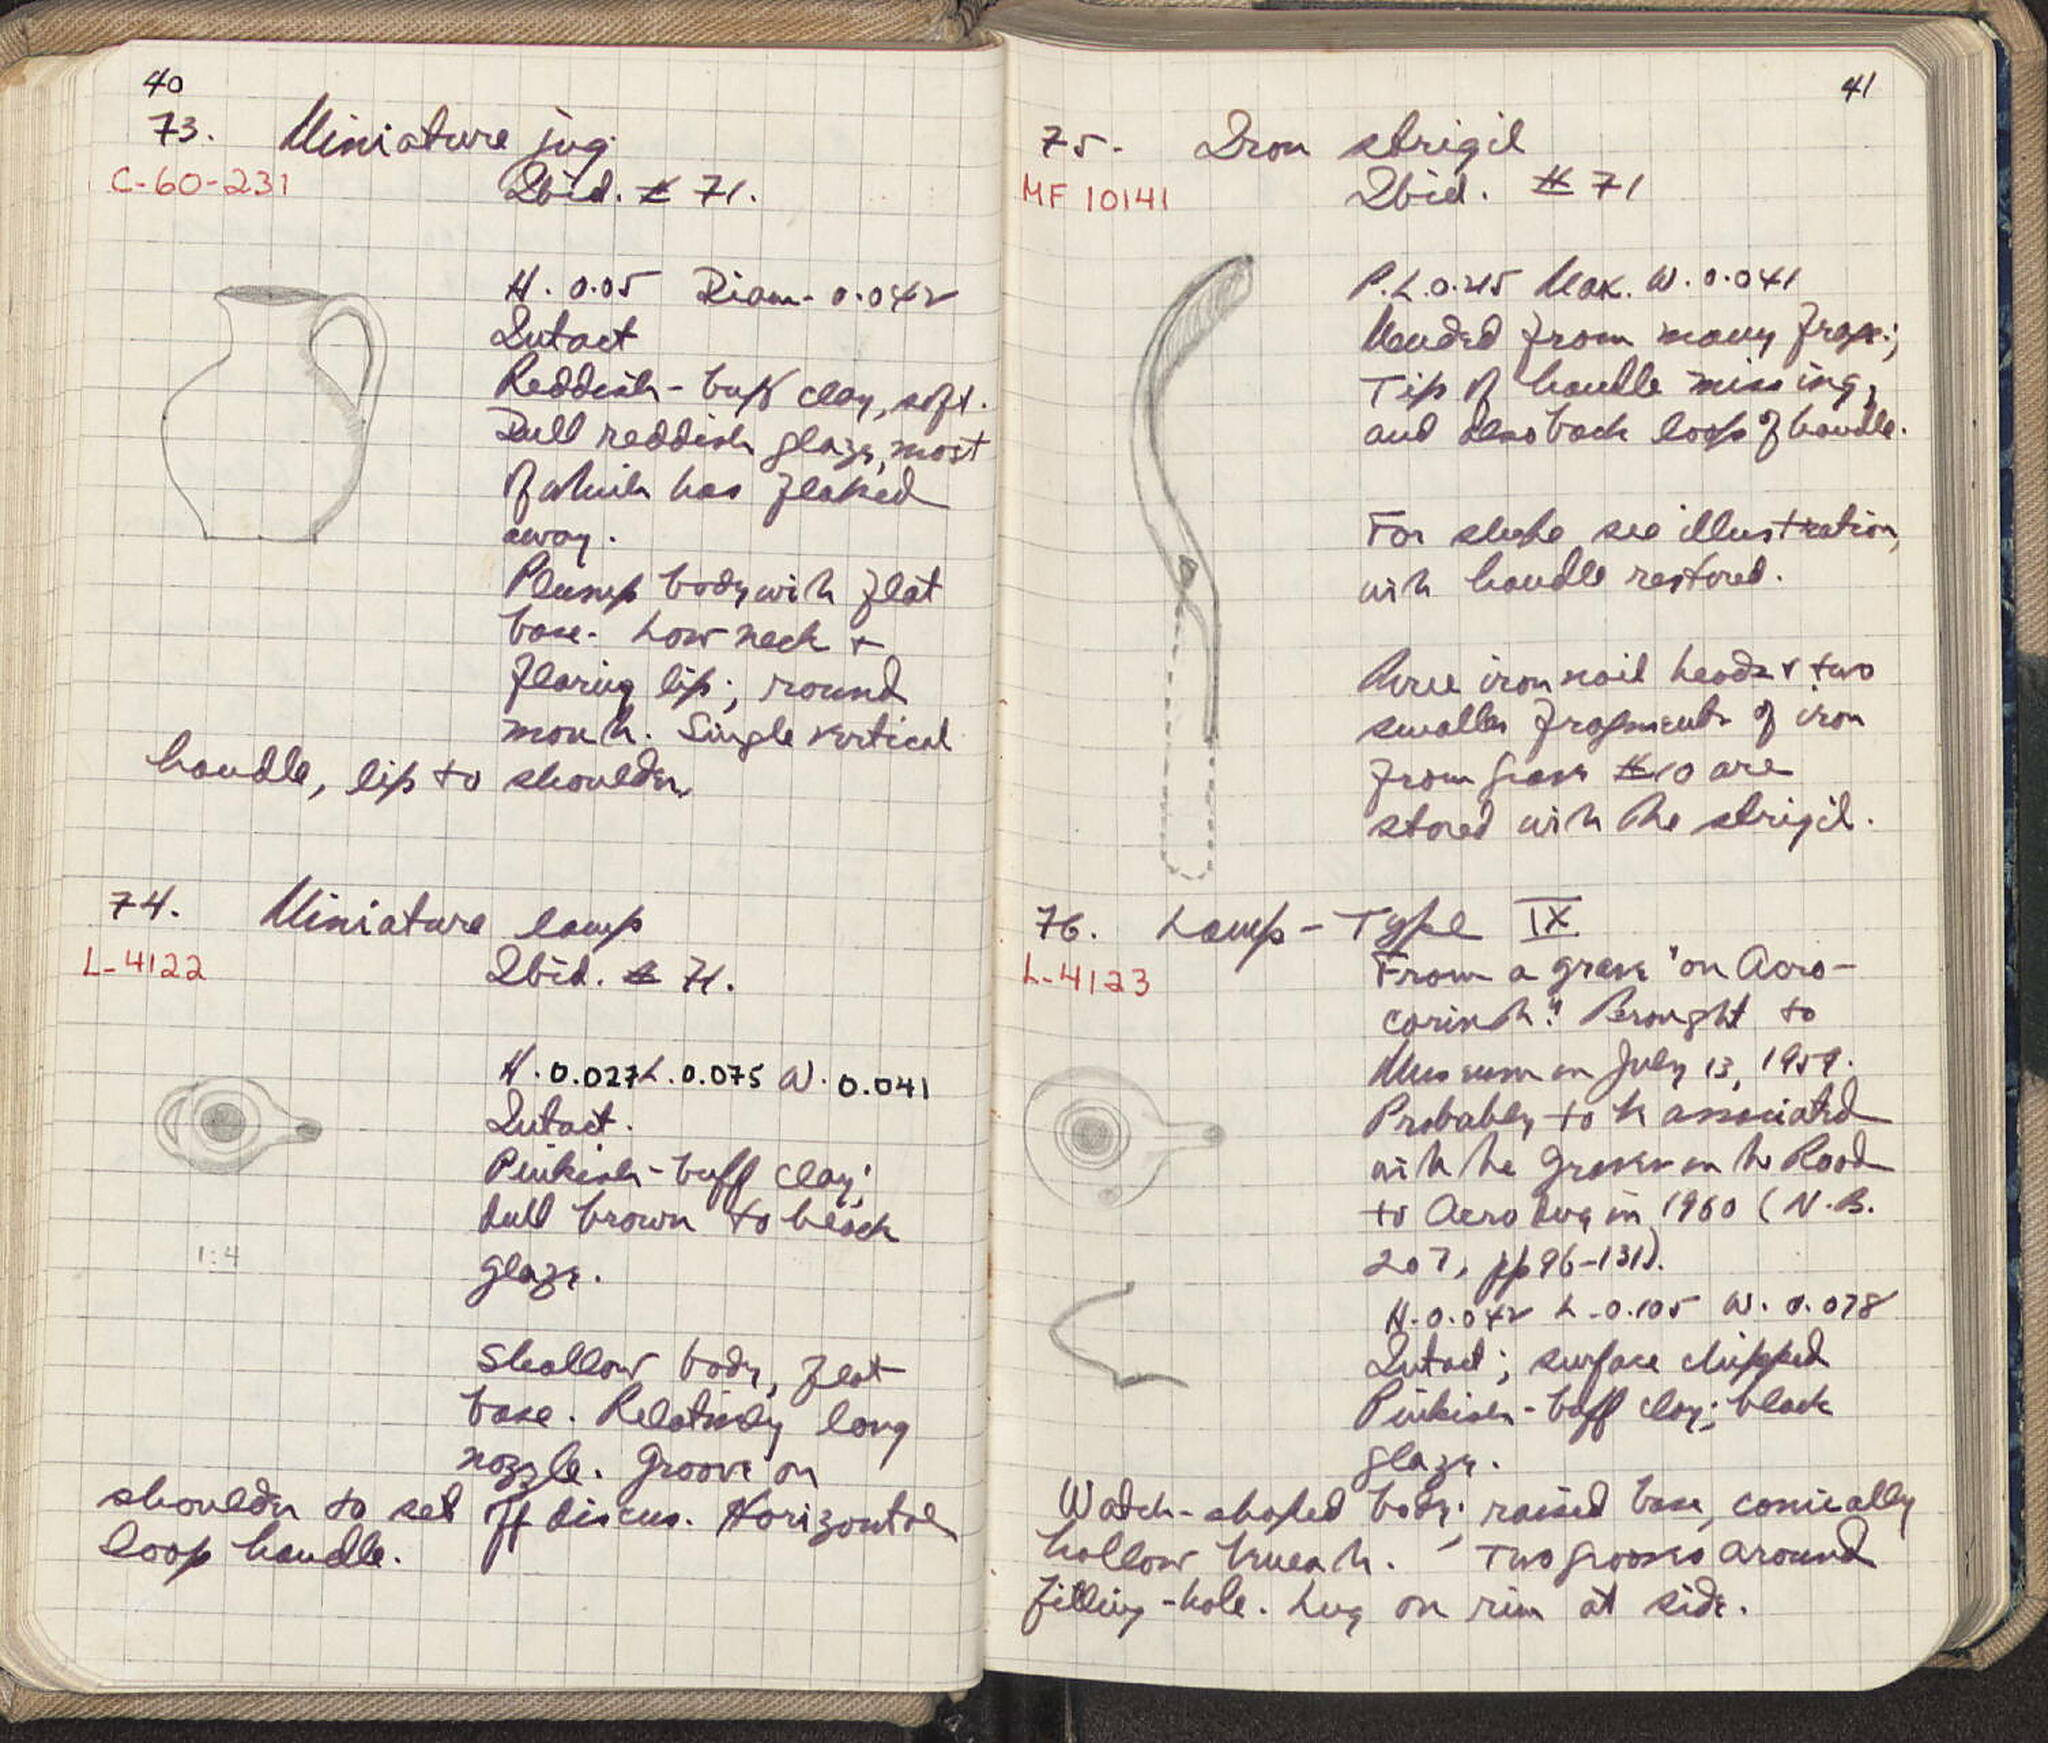 40
73. Miniature jug
C-60-231 Ibid. # 71.
H. 0.05 Diam. 0.042
Intact
Reddish-buff clay, soft.
Dull reddish glaze, most
of which has flaked
away.
Plump body with flat
base. Low neck +
flaring lip; round
mouth. Single vertical
handle, lip to shoulder.
74. Miniature lamp
L-4122 Ibid. # 71.
H. 0.027 L. 0.075 W. 0.041
Intact.
Pinkish-buff clay;
dull brown to black
glaze.
1:4
Shallow body, flat
base. Relatively long
nozzle. Groove on
shoulder to set off discus. Horizontal
loop handle.
41
75. Iron strigil
MF 10141 Ibid. # 71
P.L. 0.215 Max. W. 0.041
Mended from many frags.;
Tip of handle missing,
and also back loop of handle.
For shape see illustration,
with handle restored.
Three iron nail heads + two
smaller fragments of iron
from grave #10 are
stored with the strigil.
76. Lamp - Type IX
L-4123 From a grave "on Acro-
corinth." Brought to
Museum on July 13, 1959.
Probably to be associated
with the graves on the Road
to Acro dug in 1960 (N.B.
207, pp 96-131).
H. 0.042 L. 0.105 W. 0.078
Intact; surface chipped
Pinkish-buff clay; black
glaze.
Watch-shaped body; raised base, conically
hollow beneath. Two grooves around
filling-hole. Lug on rim at side.